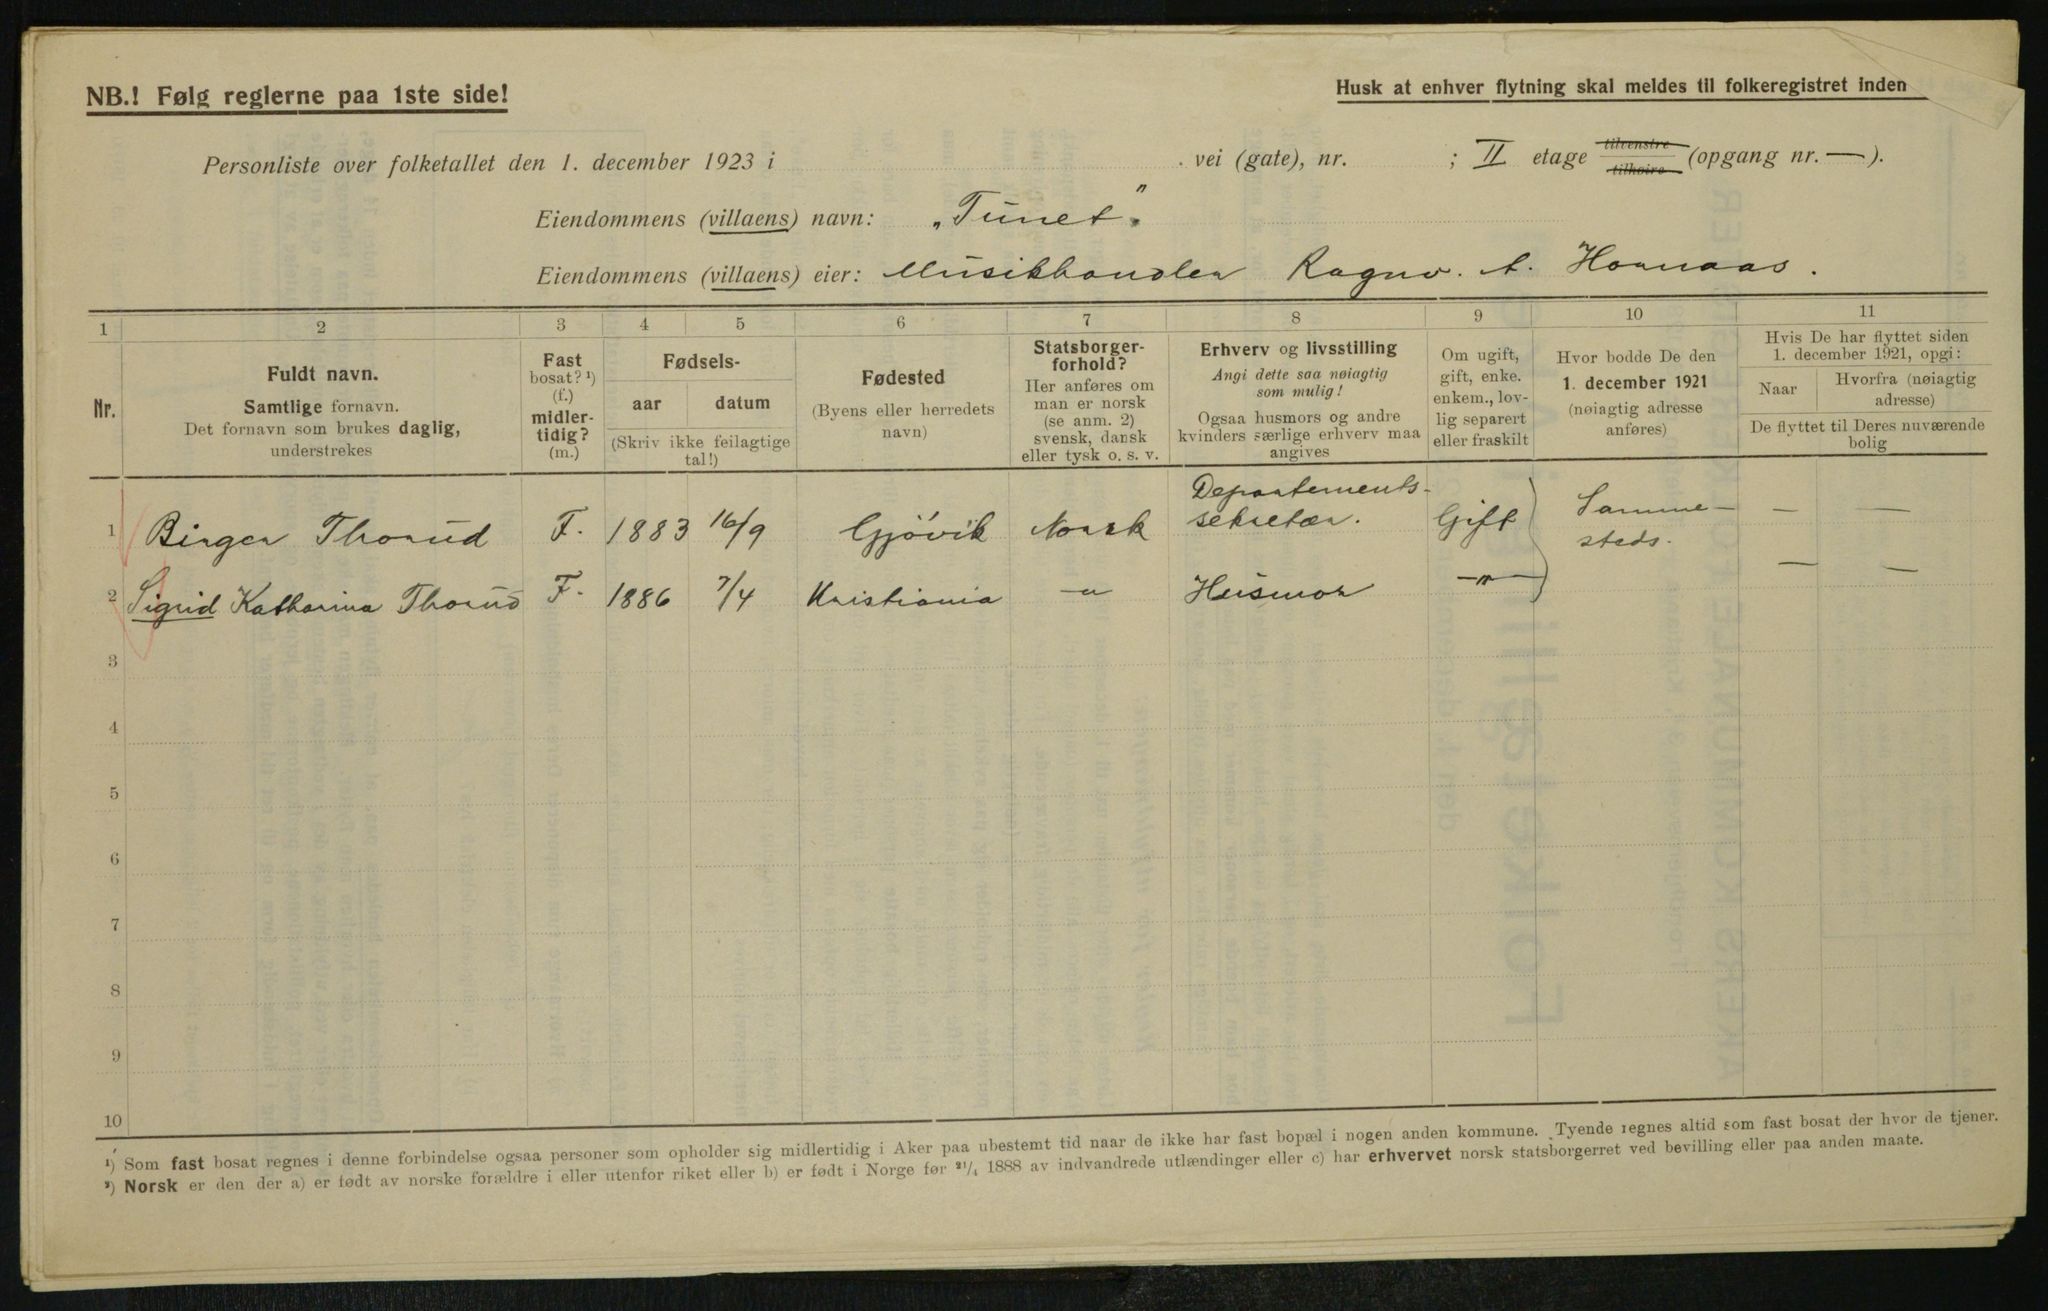 NB.! Følg reglerne paa 1ste side!
Husk at enhver flytning skal meldes til folkeregistret inden
Personliste over folketallet den 1. december 1923 i vei (gate), nr. ; II etage tilvenstre tilhøire (opgang nr. — ).
Eiendommens (villaens) navn: „Tunet".
Eiendommens (villaens) eier: Musikhandler Ragnv. A. Hornaas.
1 2 3 4 5 6 7 8 9 10 11
Nr.
Fuldt navn.
Samtlige fornavn.
Det fornavn som brukes daglig,
understrekes
Fast
bosat? ¹)
(f.)
midler-
tidig?
(m.)
Fødsels-
aar datum
(Skriv ikke feilagtige
tal!)
Fødested
(Byens eller herredets
navn)
Statsborger-
forhold?
Her anføres om
man er norsk
(se anm. 2)
svensk, dansk
eller tysk o. s. v.
Erhverv og livsstilling
Angi dette saa nøiagtig
som mulig!
Ogsaa husmors og andre
kvinders særlige erhverv maa
angives
Om ugift,
gift, enke.
enkem., lov-
lig separert
eller fraskilt
Hvor bodde De den
1. december 1921
(nøiagtig adresse
anføres)
Hvis De har flyttet siden
1. december 1921, opgi:
Naar
Hvorfra (nøiagtig
adresse)
De flyttet til Deres nuværende
bolig
1 Birger Thorud F. 1883 16/9 Gjøvik Norsk Departements-
sekretær. Gift Samme-
steds. — —
2 Sigrid Katharina Thorud F. 1886 7/4 Kristiania —"— Husmor —"— — —
3
4
5
6
7
8
9
10
¹) Som fast bosat regnes i denne forbindelse ogsaa personer som opholder sig midlertidig i Aker paa ubestemt tid naar de ikke har fast bopæl i nogen anden kommune. Tyende regnes altid som fast bosat der hvor de tjener.
²) Norsk er den der a) er født av norske forældre i eller utenfor riket eller b) er født i Norge før ²¹/₄ 1888 av indvandrede utlændinger eller c) har erhvervet norsk statsborgerret ved bevilling eller paa anden maate.